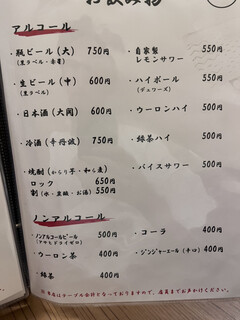 お飲み物
アルコール
・瓶ビール(大) 750円
(黒ラベル・赤星)
・生ビール(中) 600円
(黒ラベル)
・日本酒(大関) 600円
・冷酒(辛丹波) 750円
・焼酎(からり芋・和ら麦)
ロック 650円
割(水・炭酸・お湯) 550円
・自家製 550円
レモンサワー
・ハイボール 550円
(デュワーズ)
・ウーロンハイ 500円
・緑茶ハイ 500円
・バイスサワー 500円
ノンアルコール
・ノンアルコールビール 500円
・ウーロン茶 400円
・緑茶 400円
・コーラ 400円
・ジンジャーエール(辛口) 400円
※当店はテーブル会計となっておりますので、店員までお声かけください。